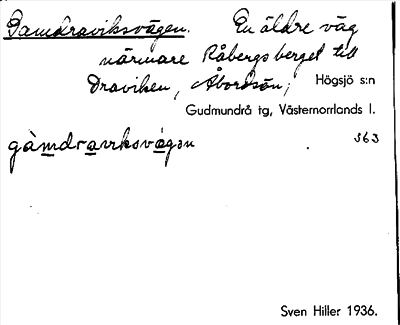 Gamdraviksvägen. En äldre väg
närmare Råbergsberget till
Draviken, Åbordsön; Högsjö s:n
Gudmundrå tg, Västernorrlands l.
gàmdravıksvägən 363
Sven Hiller 1936.